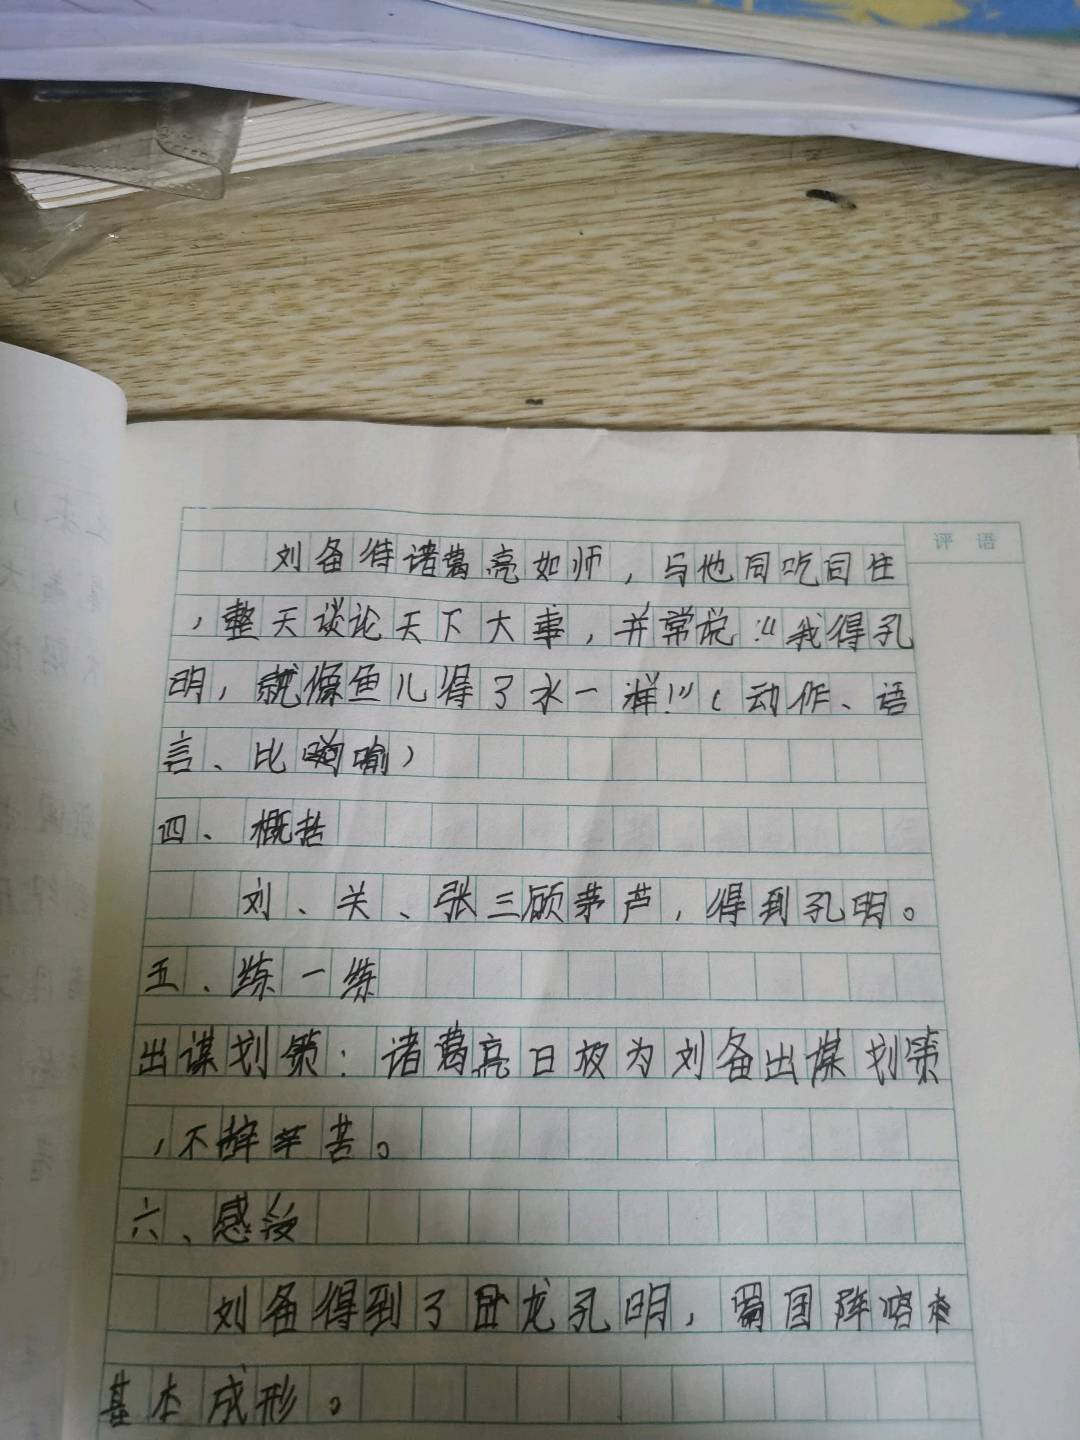 评语
刘备待诸葛亮如师，与他同吃同住
，整天谈论天下大事，并常说：“我得孔
明，就像鱼儿得了水一样！”（动作、语
言、比喻）
四、概括
刘、关、张三顾茅芦，得到孔明。
五、练一练
出谋划策：诸葛亮日夜为刘备出谋划策
，不辞辛苦。
六、感
刘备得到了卧龙孔明，蜀国阵
基本成形。